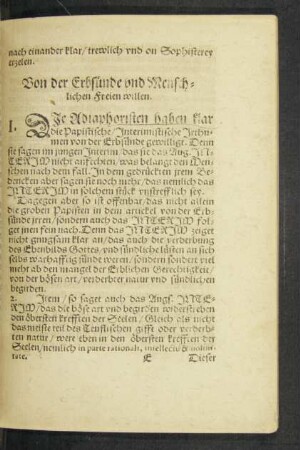 nach einander klar/ trewlich vnd on Sophisterey
erzelen.
Von der Erbsünde vnd Mensch-
lichen Freien willen.
I. DJe Adiaphoristen haben klar
die Papistische/ Interimistische Irrthu-
men von der Erbsünde gewilligt. Denn
sie sagen im jungen Interim, das sie das Aug. INT-
ERIM nicht anfechten, was belanget den Men-
schen nach dem fall. In dem gedrückten jrem Be-
dencken aber sagen sie noch mehr/ das nemlich das
INTERIM in solchem stück vnstrefflich sey.
Dagegen aber so ist offenbar/ das nicht allein
die groben Papisten in dem artickel von der Erb-
sünde jrren/ sondern auch das INTERIM fol-
get jnen fein nach. Denn das INTERIM zeiget
nicht gnugsam klar an/ das auch die verderbung
des Ebenbilds Gottes/ vnd sündliche lüsten an sich
selbs warhafftig sünde weren/ sondern sondert viel
mehr ab den mangel der Erblichen Gerechtigkeit/
von der bösen art/ verderbter natur vnd sündlichen
begirden.
2. Item/ so saget auch das Augs. INTE-
RIM/ das die böse art vnd begirden widerstreben
den öbersten krefften der Seelen/ Gleich als nicht
das meiste teil des Teuflischen giffts oder verderb-
ten natur/ were eben in den öbersten krefften der
Seelen/ nemlich in parte rationali, intellectu & volun-
tate. E Dieser